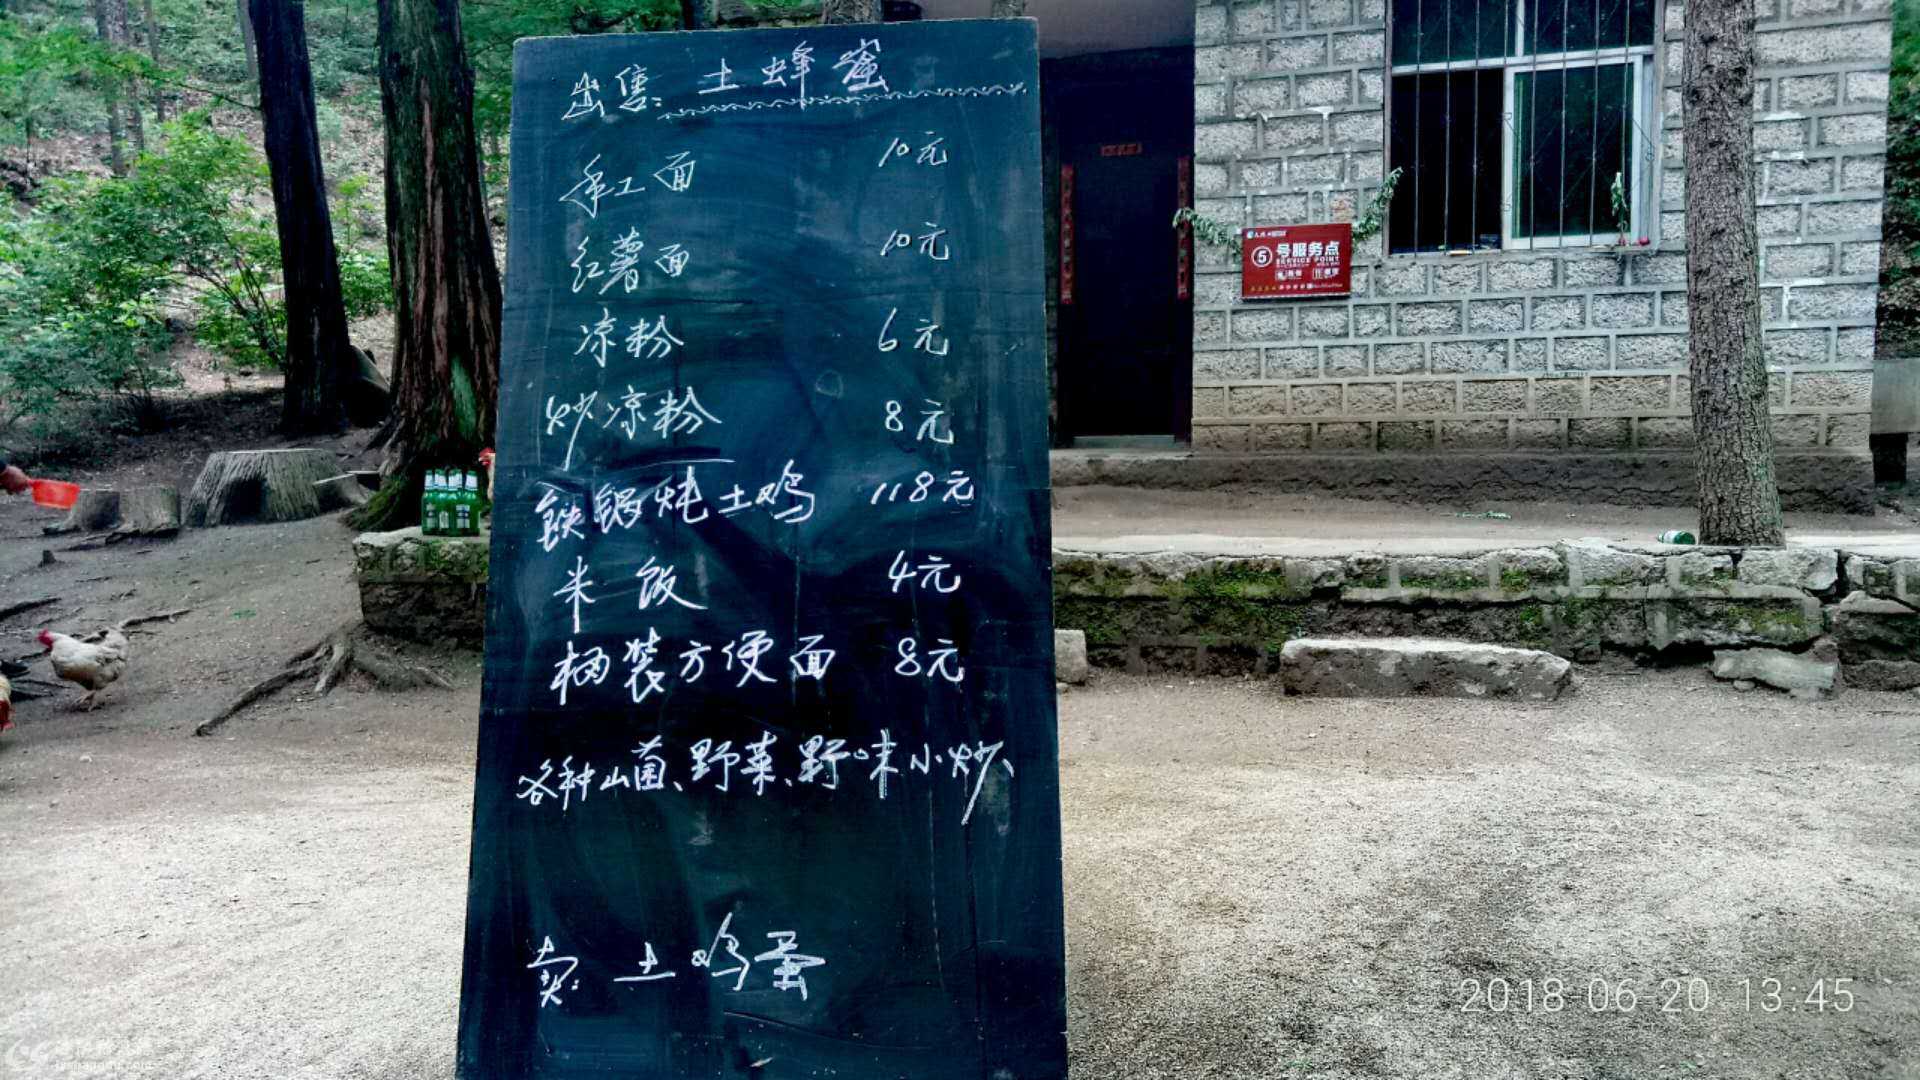 出售: 土蜂蜜
手工面 10元
红薯面 10元
凉粉 6元
炒凉粉 8元
铁锅炖土鸡 118元
米饭 4元
桶装方便面 8元
各种山菌、野菜、野味小炒、
卖: 土鸡蛋
5 号服务点
SERVICE POINT
2018-06-20 13:45